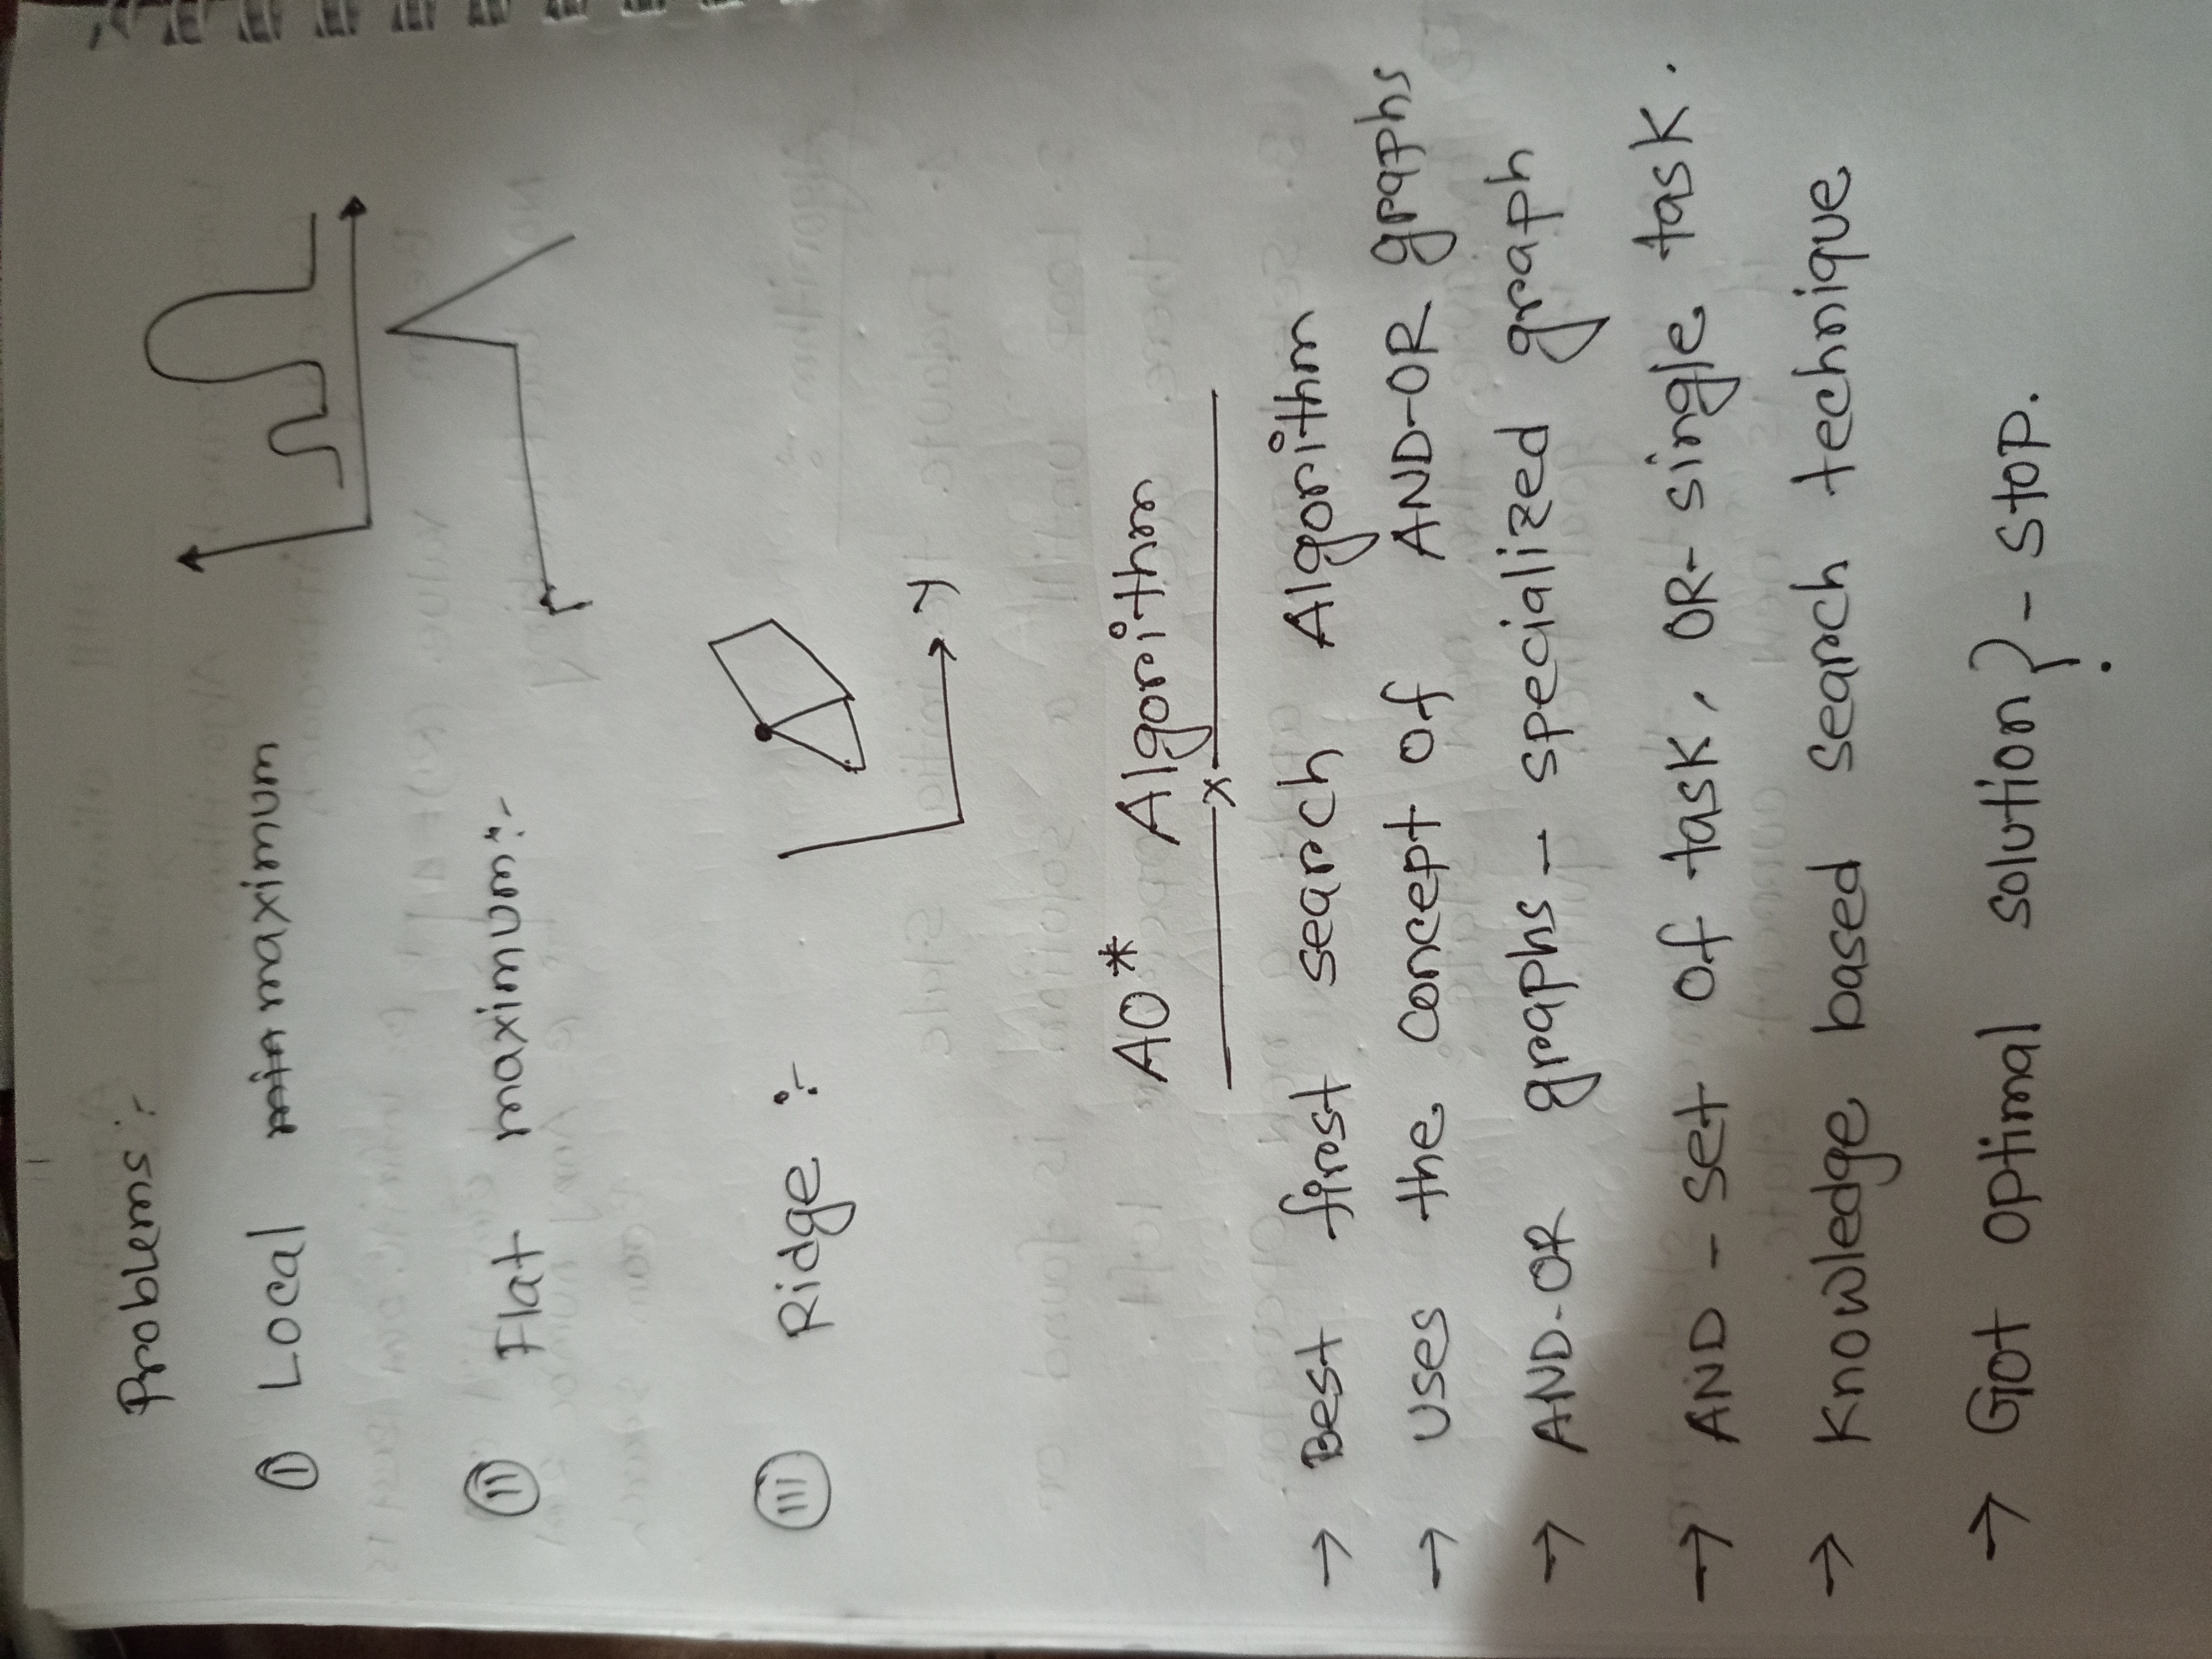 Problems :-
① Local min maximum
⑪ Flat maximum :-
⑪① Ridge :-
y
AO* Algorithm
x
→ Best first search Algorithm
→ Uses the concept of AND-OR graphs
→ AND-OR graphs - specialized graph
→ AND - set of task, OR- single task.
→ Knowledge based search technique
→ Got optimal solution? - stop.